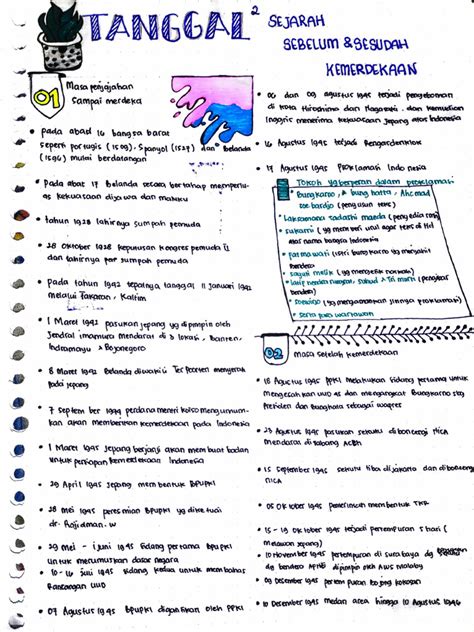 TANGGAL² SEJARAH
SEBELUM & SESUDAH
KEMERDEKAAN
01
Masa penjajahan
sampai merdeka
• pada abad 16 bangsa barat
seperti portugis (1509), Spanyol (1521) dan Belanda
(1596) mulai berdatangan
• Pada abat 17 Belanda secara bertahap memperlu-
as kekuasaan dijawa dan maluku
• tahun 1928 lahirnya sumpah pemuda
• 28 Oktober 1928 keputusan kongres pemuda II
dan lahirnya por sumpah pemuda
• pada tahun 1942 tepatnya tanggal 11 januari 1942
melalui Tarakan, Kaltim
• 1 Maret 1942 pasukan jepang yg dipimpin oleh
Jendral imamura mendarat di 3 lokasi, Banten,
Indramayu & Bojonegoro
• 8 Maret 1942 Belanda diwakili Ter poorten menyerah
pada jepang
• 7 september 1944 perdana menteri koiso mengumum-
kan akan memberikan kemerdekaan pada Indonesia
• 1 Maret 1945 jepang berjanji akan membuat badan
untuk persiapan kemerdekaan Indonesia
• 29 April 1945 Jepang membentuk BPUPKI
• 28 mei 1945 peresmian BPUPKI yg diketuai
dr. Radjiman. w
• 29 mei - 1 juni 1945 Sidang pertama BPUPKI
untuk merumuskan dasar negara
• 10 - 16 juli 1945 Sidang kedua untuk membahas
Rancangan UUD
• 07 Agustus 1945 BPUPKI digantikan oleh PPKI
• 06 dan 09 agustus 1945 terjadi pengeboman
di kota Hiroshima dan Nagasaki. dan kemudian
Inggris menerima kekuasaan Jepang atas Indonesia
• 16 Agustus 1945 terjadi Pengasdengklok
• 17 Agustus 1945 Proklamasi Indonesia
Tokoh yg berperan dalam proklamasi
• Bungkarno & bung hatta, Ahc mad
soebardjo (penyusun teks)
• Laksamana tadashi maeda (penyedia ruang)
• sukarni (yg memberi usul agar teks di ttd
atas nama bangsa Indonesia)
• fatmawati (istri bung karno yg menjahit
bendera)
• sayuti melik (yg mengetik naskah)
• latif hendraningrat, suhud & tri murti (pengibar
bendera)
• soediro (yg mengamankan jalannya proklamasi)
• serta para wartawan
02
Masa setelah kemerdekaan
• 18 Agustus 1945 PPKI Melakukan sidang pertama untuk
mengesahkan UUD 45 dan mengangkat Bungkarno sbg
Presiden dan Bunghatta sebagai wapres
• 23 Agustus 1945 pasukan sekutu diboncengi NICA
Mendarat di Sabang Aceh
• 15 September 1945 sekutu tiba di jakarta dan diboncengi
NICA
• 05 Oktober 1945 pemerintah membentuk TKR
• 15 - 19 Oktober 1945 terjadi pertempuran 5 hari (
Melawan jepang)
• 10 November 1945 pertempuran di surabaya dg
dg bendera AFNEI dipimpin oleh AWS Malaby
• 09 Desember 1945 pertempuran bojong kokosan
• 10 Desember 1945 Medan area hingga 10 Agustus 1946